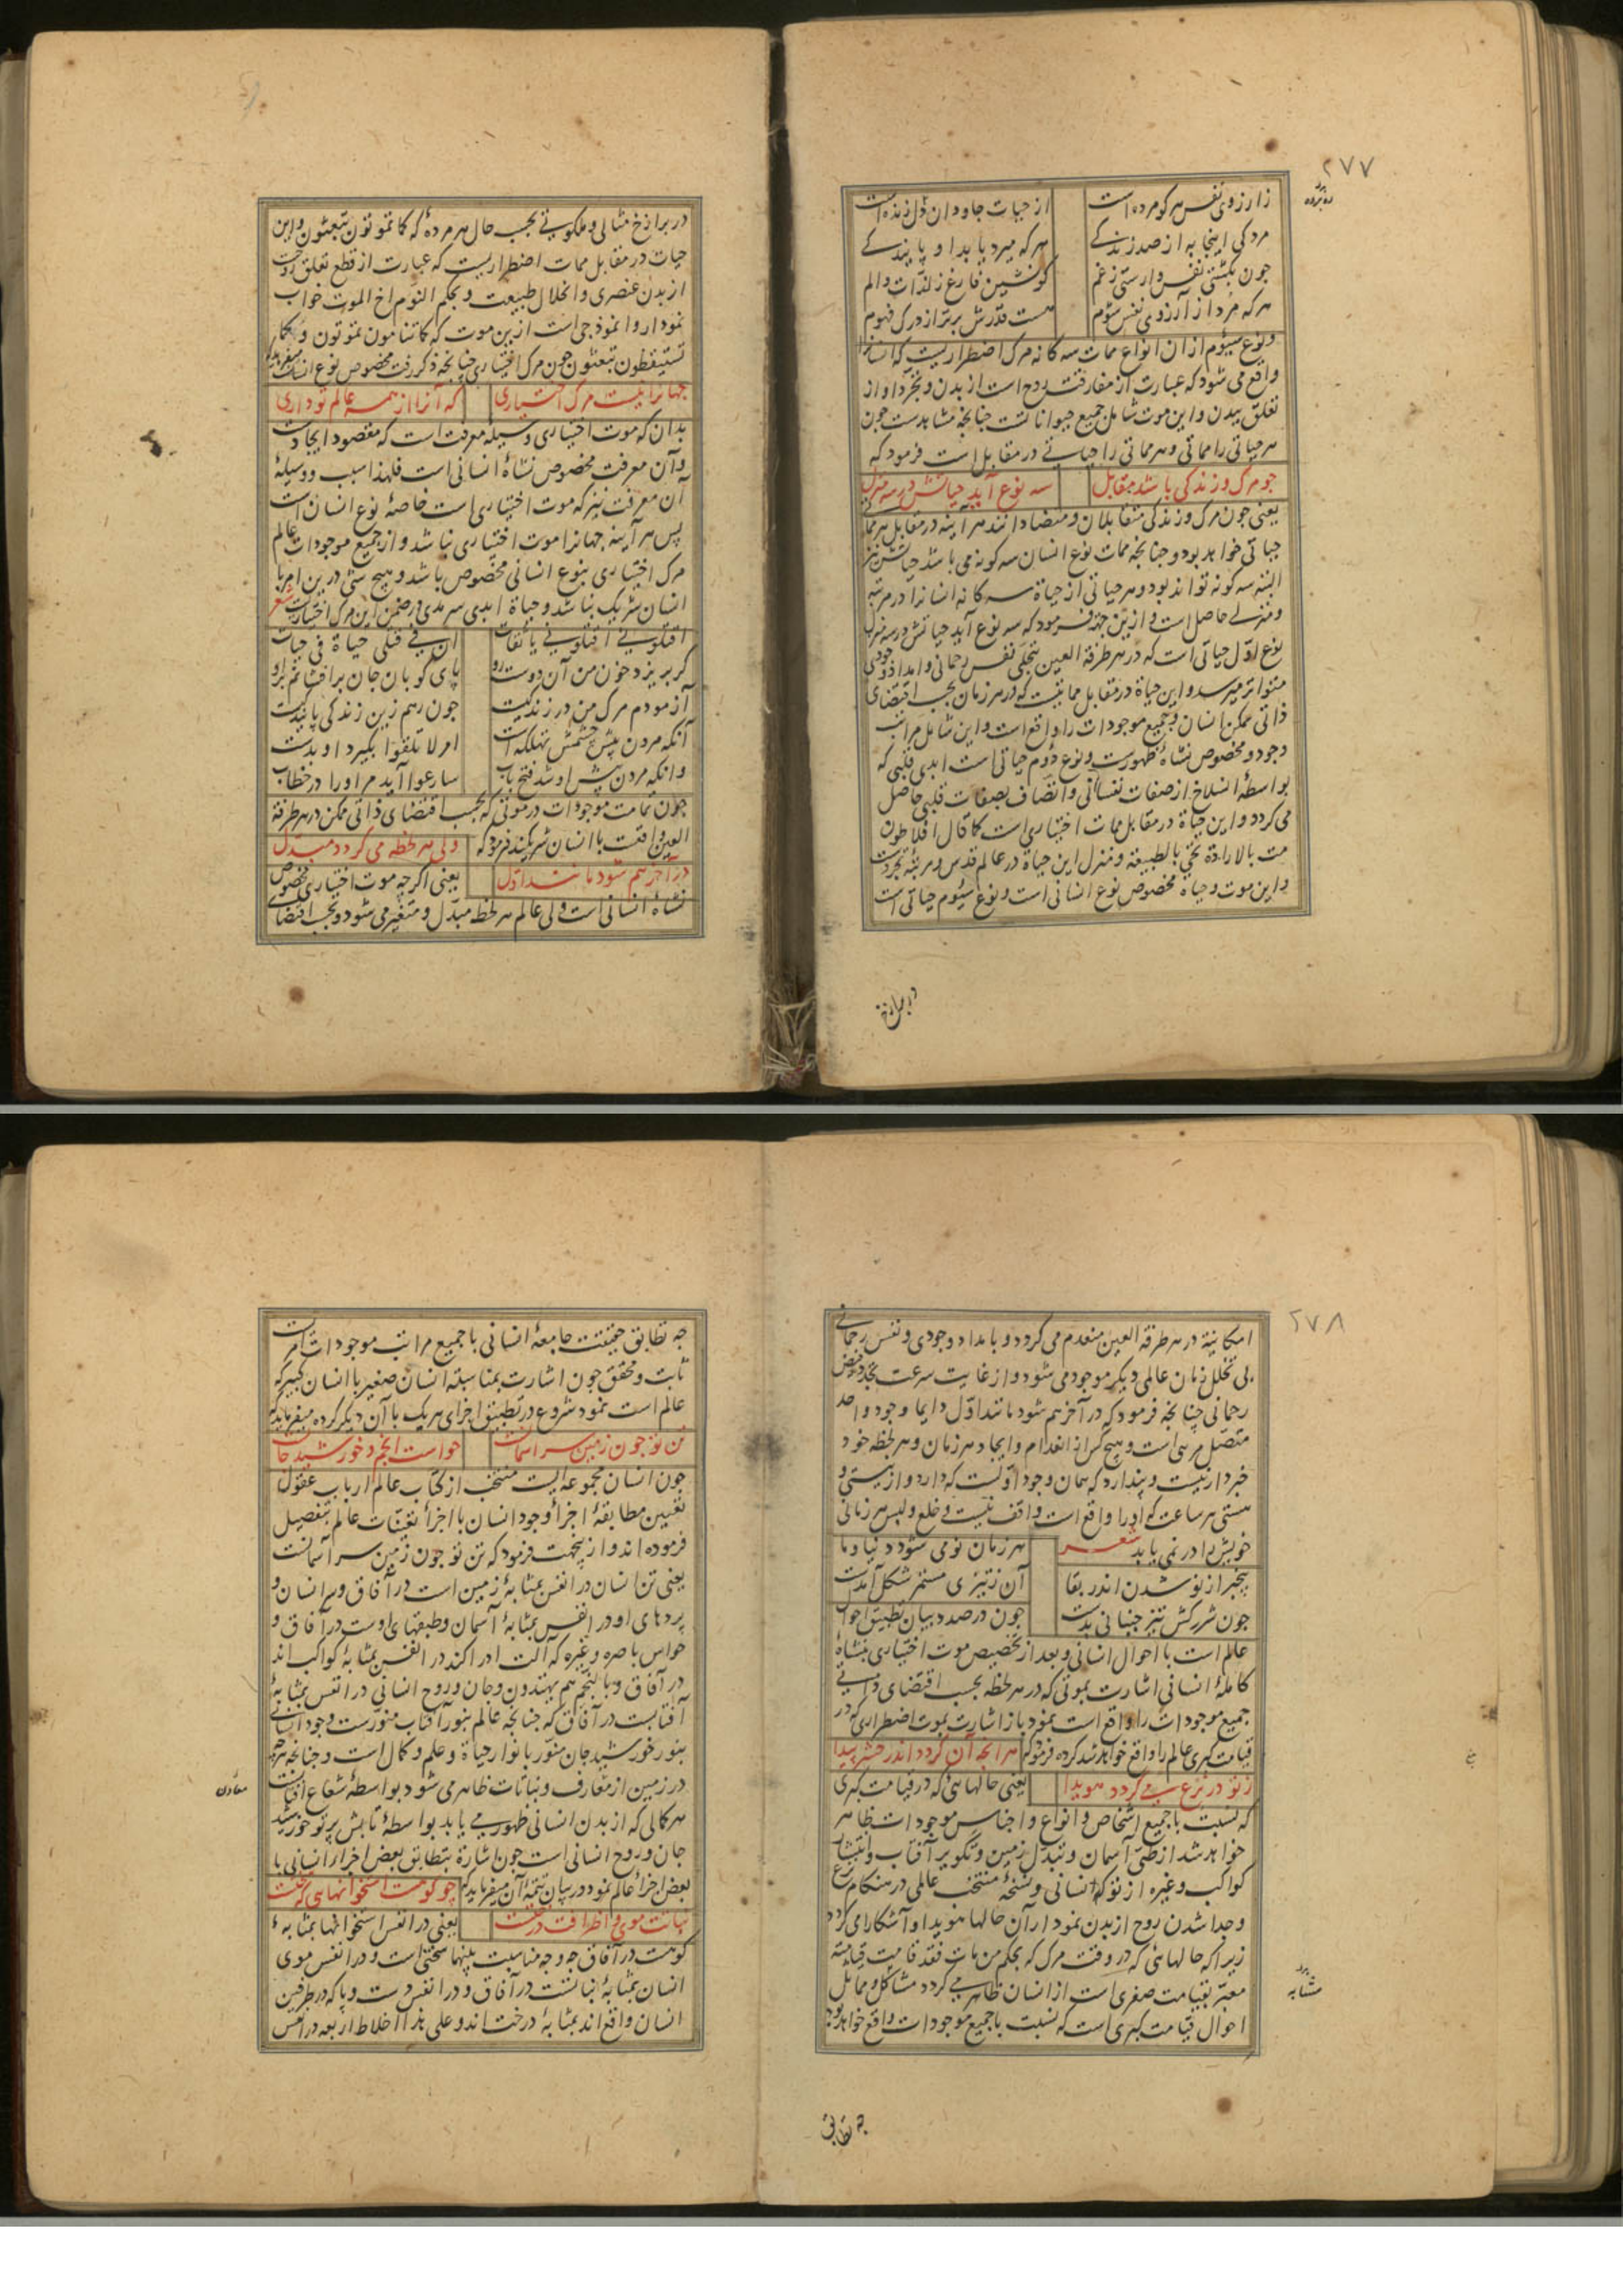 ۲۷۷
ز آرزوی نفس هر کو مرده است
از حیات جاودان دل زنده است
مردکی اینجا به از صد زندکی
هر که میرد یابد او پایندکی
چون بکشتی نفس وارستی ز غم
کو نشین فارغ ز لذات و الم
هر که مرد از آرزوی نفس شوم
هست قدرش برتر از درک فهوم
و نوع سیوم ازان انواع ممات سه کانه مرک اضطراریست که انسانرا
واقع می شود که عبارت از مفارقت روح است از بدن و تجرد او از
تعلق ببدن و این موت شامل جمیع حیوانات است چنانچه مشاهدست چون
هر حیاتی را مماتی و هر مماتی را حیاتی در مقابل است فرمود که
چو مرک و زندکی باشد مقابل
سه نوع آید حیاتش در سه منزل
یعنی چون مرک و زندکی متقابلان و متضادانند هر آینه در مقابل هر مماتی
حیاتی خواهد بود و چنانچه ممات نوع انسان سه کونه می باشد حیاتش نیز
البته سه کونه تواند بود و هر حیاتی از حیاة سه کانه انسانرا در مرتبه
و منزلی حاصل است و ازین جهة فرمود که سه نوع آید حیاتش در سه منزل
نوع اول حیاتی است که در هر طرفة العین بتجلی نفس رحمانی و امداد وجودی
متواتر میرسد و این حیاة در مقابل مماتیست که در هر زمان بحسب اقتضای
ذاتی ممکن انسان و جمیع موجودات را واقع است و این شامل مراتب
وجود و مخصوص نشاة ظهورست و نوع دوم حیاتی است ابدی قلبی که
بواسطهٔ انسلاخ از صفات نفسانی و اتصاف بصفات قلبی حاصل
می کردد و این حیاة در مقابل ممات اختیاری است کما قال افلاطون
مت بالارادة تحیی بالطبیعة و منزل این حیاة در عالم قدس و مرتبه تجرد است
و این موت و حیاة مخصوص نوع انسانی است و نوع سیوم حیاتی است
در برازخ
در برازخ مثالی و ملکوتی بحسب حال هر مرده که کما تموتون تبعثون و این
حیات در مقابل ممات اضطراریست که عبارت از قطع تعلق روحست
از بدن عنصری و انحلال طبیعت و بحکم النوم اخ الموت خواب
نمودار و انموذجی است ازین موت که کما تنامون تموتون و کما
تستیقظون تبعثون چون مرک اختیاری چنانچه ذکر رفت مخصوص نوع انسانست میفرماید که
جهانرا نیست مرک اختیاری
که آنرا از همه عالم تو داری
بدان که موت اختیاری وسیلهٔ معرفت است که مقصود ایجادست
و آن معرفت مخصوص نشاة انسانی است فلهذا سبب و وسیلهٔ
آن معرفت نیز که موت اختیاری است خاصهٔ نوع انسان است
پس هر آینه جهانرا موت اختیاری نباشد و از جمیع موجودات عالم
مرک اختیاری بنوع انسانی مخصوص باشد و هیچ شئ درین امر با
انسان شریک نباشد و حیاة ابدی سرمدی در ضمن این مرک اختیاریست شعر
اقتلونی اقتلونی یا ثقات
ان فی قتلی حیاة فی حیات
کر بریزد خون من آن دوست رو
پای کوبان جان برافشانم برو
آزمودم مرک من در زندکیست
چون رهم زین زندکی پایندکیست
آنکه مردن پیش چشمش تهلکه است
امر لا تلقوا بکیرد او بدست
وانکه مردن پیش او شد فتح باب
سارعوا آید مر او را در خطاب
چون تمامت موجودات در موتی که بحسب اقتضای ذاتی ممکن در هر طرفة
العین واقعست با انسان شریکند فرمود که
ولی هر لحظه می کردد مبدل
در آخر هم شود مانند اول
یعنی اکرچه موت اختیاری مخصوص
نشاة انسانی است ولی عالم هر لحظه مبدل و متغیر می شود و بحسب اقتضای
۲۷۸
امکانیة در هر طرفة العین منعدم می کردد و بامداد وجودی و نفس رحمانی
بی تخلل زمان عالمی دیکر موجود می شود و از غایت سرعت تجدد فیض
رحمانی چنانچه فرمود که در آخر هم شود مانند اول دایما وجود واحد
متصل مرئی است و هیچ کس از انعدام و ایجاد هر زمان و هر لحظه خود
خبردار نیست و پندارد که همان وجود اولست که دارد و از نیستی و
هستی هر ساعت که او را واقع است واقف نیست و خلع و لبس هر زمانی
خویش را در نمی یابد شعر
هر زمان نو می شود دنیا و ما
بیخبر از نو شدن اندر بقا
آن ز تیزی مستمر شکل آمدست
چون شرر کش تیز جنبانی بدست
چون در صدد بیان تطبیق احوال
عالم است با احوال انسانی و بعد از تخصیص موت اختیاری بنشاة
کاملهٔ انسانی اشارت بموتی که در هر لحظه بحسب اقتضای ذاتی
جمیع موجودات را واقع است نمود باز اشارت بموت اضطراری که در
قیامت کبری عالم را واقع خواهد شد کرده فرمود که
هر آنچه آن کردد اندر حشر پیدا
ز تو در نزع می کردد هویدا
یعنی حالهائی که در قیامت کبری
که نسبت با جمیع اشخاص و انواع و اجناس موجودات ظاهر
خواهد شد از طی آسمان و تبدل زمین و تکویر آفتاب و انتشار
کواکب و غیره از تو که انسانی و نسخهٔ منتخب عالمی در هنکام نزع
و جدا شدن روح از بدن نمودار آن حالها هویدا و آشکارا می کردد
زیرا که حالهائی که در وقت مرک که بحکم من مات فقد قامت قیامته
معبر بقیامت صغری است از انسان ظاهر می کردد مشاکل و مماثل
احوال قیامت کبری است که نسبت با جمیع موجودات واقع خواهد بود
مشابه
چه تطابق
چه تطابق حقیقت جامعهٔ انسانی با جمیع مراتب موجودات امریست
ثابت و محقق چون اشارت بمناسبة انسان صغیر با انسان کبیر که
عالم است نمود شروع در تطبیق اجزای هر یک با آن دیکر کرده میفرماید که
تن تو چون زمین سر آسمانست
حواست انجم و خورشید جانست
چون انسان مجموعه ایست منتخب از کتاب عالم ارباب عقول
تعیین مطابقهٔ اجزأ وجود انسان با اجزأ تعینات عالم بتفصیل
فرموده اند و ازینجهت فرمود که تن تو چون زمین سر آسمانست
یعنی تن انسان در انفس بمثابهٔ زمین است در آفاق و سر انسان و
پردهای او در انفس بمثابهٔ آسمان و طبقهای اوست در آفاق و
حواس باصره و غیره که آلت ادراکند در انفس بمثابهٔ کواکب اند
در آفاق و بالنجم هم یهتدون و جان و روح انسانی در انفس بمثابهٔ
آفتابست در آفاق که چنانچه عالم بنور آفتاب منورست وجود انسانی
بنور خورشید جان منور بانوار حیاة و علم و کمال است و چنانچه هرچه
در زمین از معارف و نباتات ظاهر می شود بواسطهٔ شعاع آفتابست
معادن
هر کمالی که از بدن انسانی ظهور می یابد بواسطهٔ تابش پرتو خورشید
جان و روح انسانی است چون اشارة بتطابق بعض اجزأ انسانی با
بعض اجزأ عالم نمود در بیان تتمهٔ آن میفرماید که
چو کوهست استخوانهایی که سختست
نباتت موی و اطرافت درختست
یعنی در انفس استخوانها بمثابهٔ
کوهست در آفاق چه وجه مناسبت بینهما سختی است و در انفس موی
انسان بمثابهٔ نباتست در آفاق و در انفس دست و پا که در طرفین
انسان واقع اند بمثابهٔ درخت اند و علی هذا اخلاط اربعه در انفس